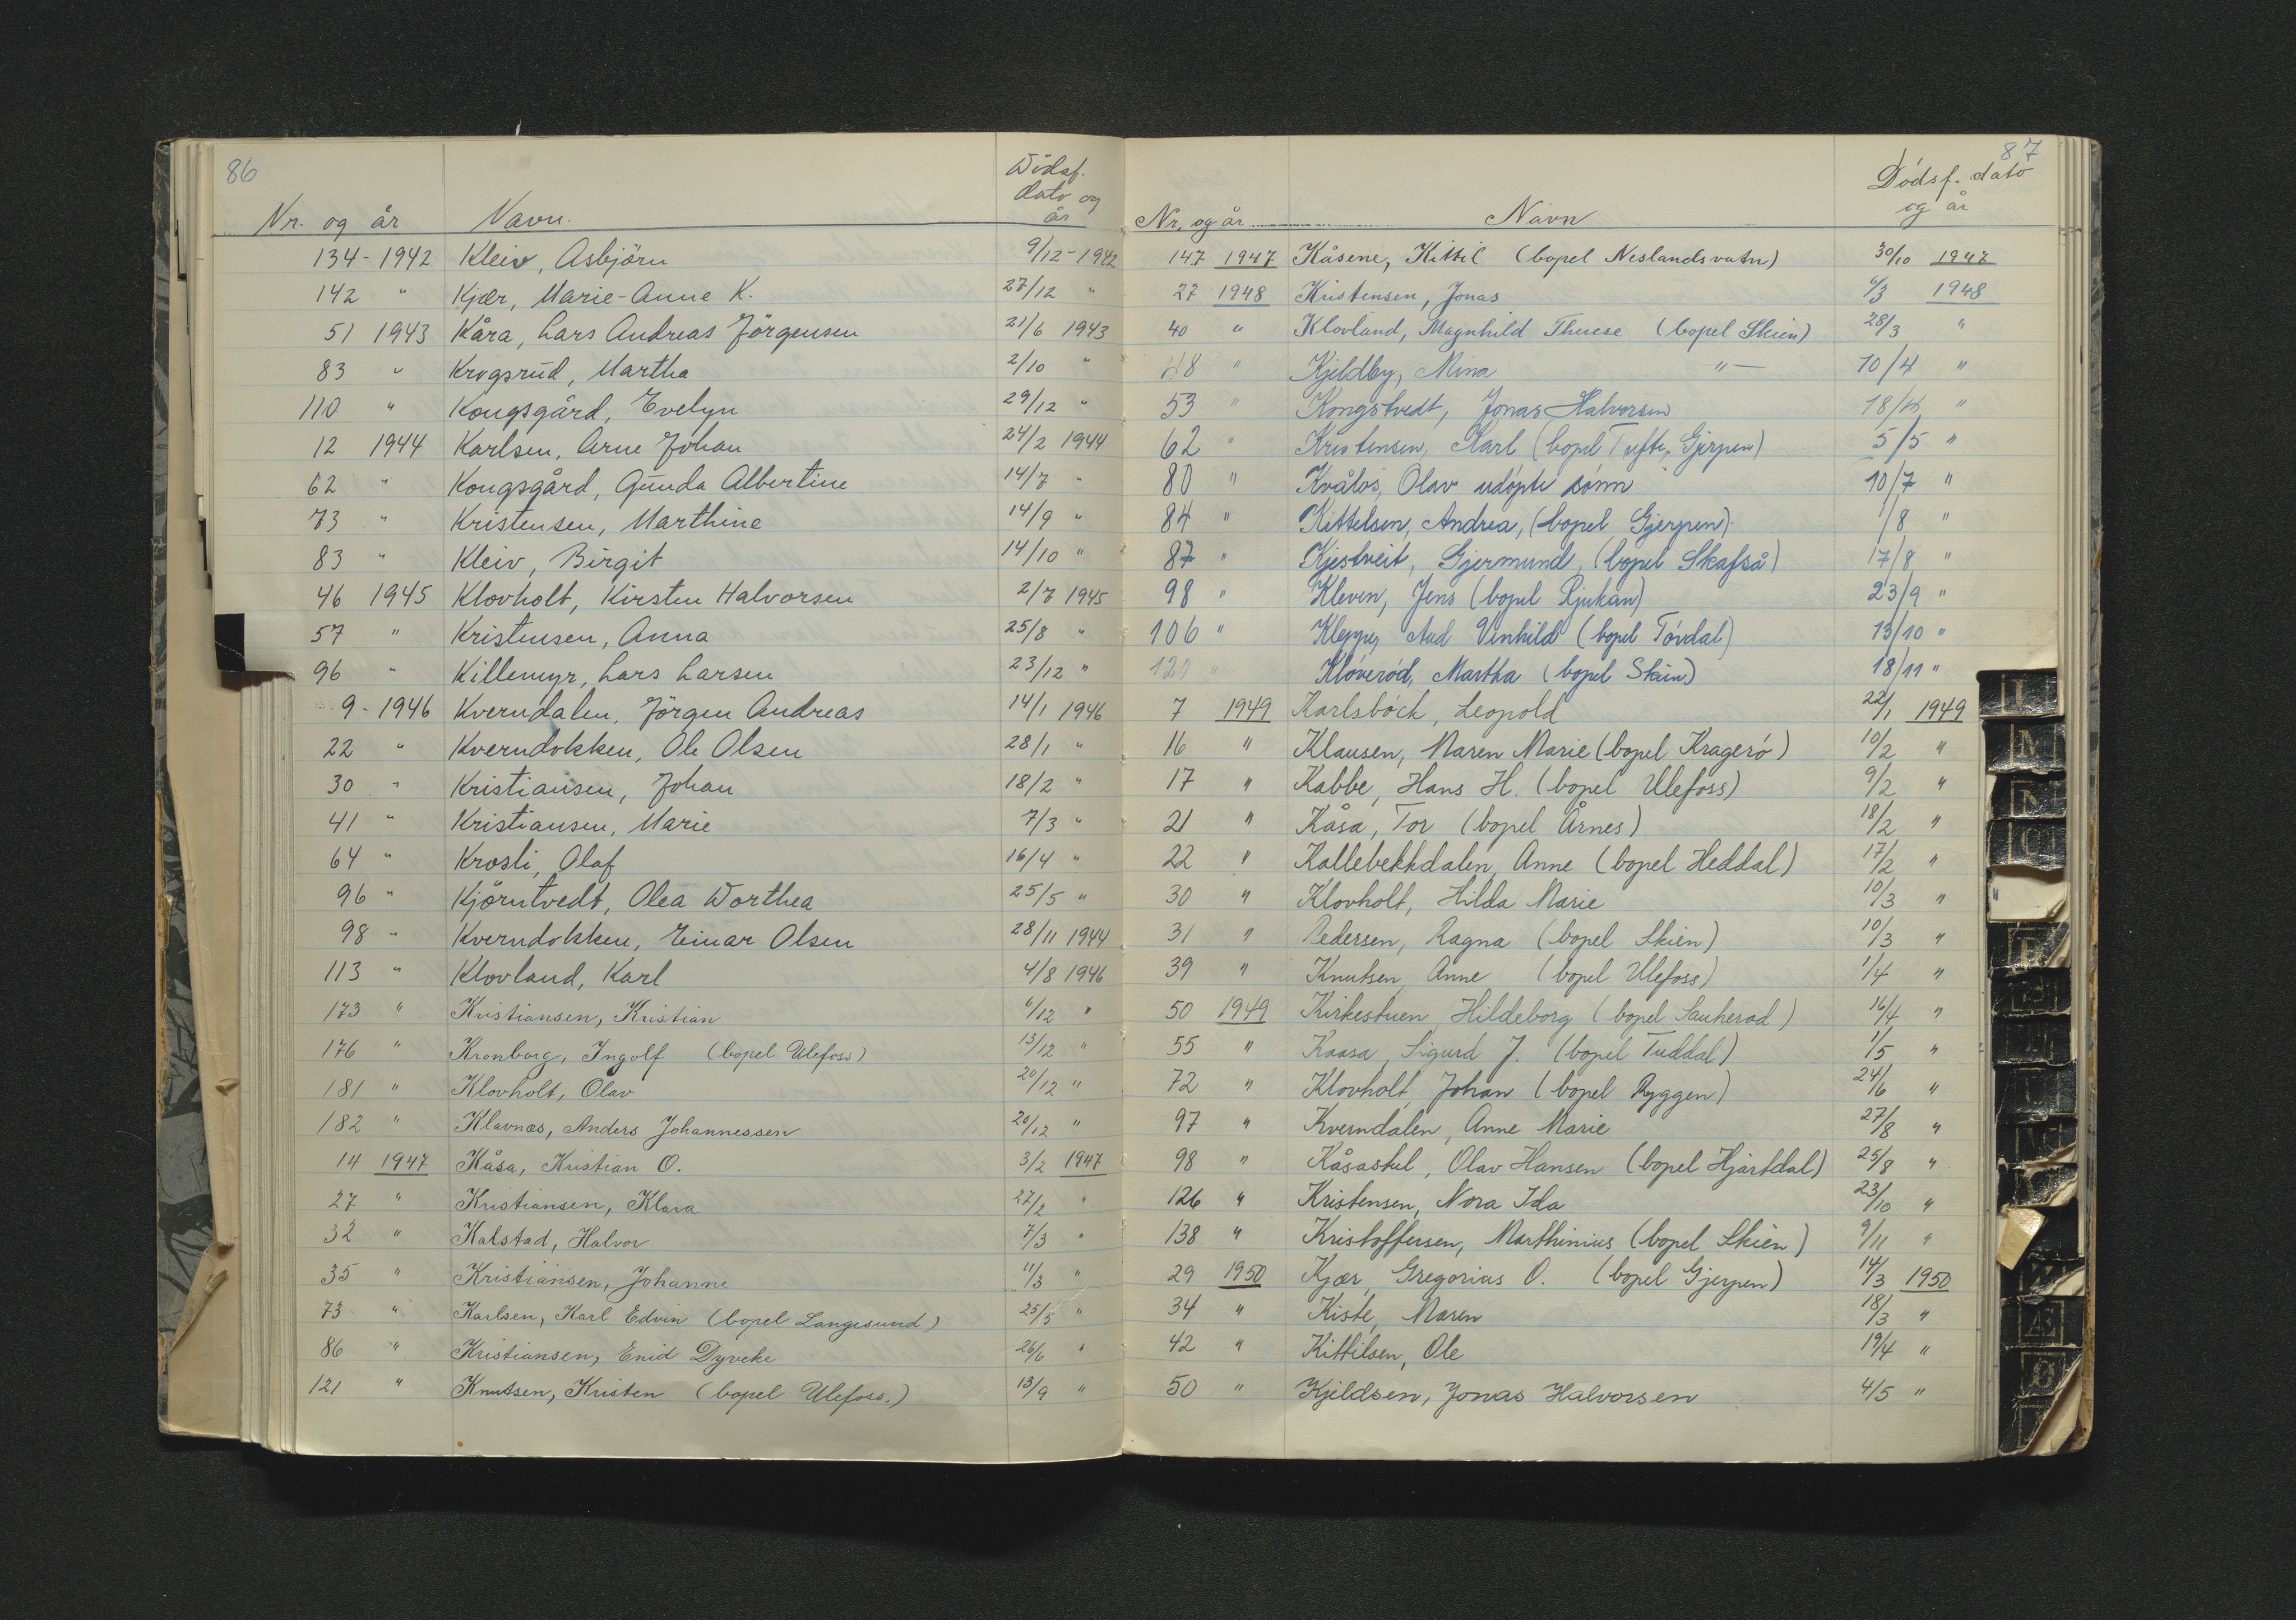 86
Nr. og år Navn. Dödsf. dato og år
134 - 1942 Kleiv, Asbjörn 9/12 - 1942
142 " Kjær, Marie-Anne K. 27/12 "
51 1943 Kåra, Lars Andreas Jörgensen 21/6 1943
83 " Krogsrud, Martha 2/10 "
110 " Kongsgård, Evelyn 29/12 "
12 1944 Karlsen, Arne Johan 24/2 1944
62 " Kongsgård, Gunda Albertine 14/7 "
73 " Kristensen, Marthine 14/9 "
83 " Kleiv, Birgit 14/10 "
46 1945 Klovholt, Kirsten Halvorsen 2/7 1945
57 " Kristensen, Anna 25/8 "
96 " Killemyr, Lars Larsen 23/12 "
9 - 1946 Kverndalen, Jörgen Andreas 14/1 1946
22 " Kverndokken, Ole Olsen 28/1 "
30 " Kristiansen, Johan 18/2 "
41 " Kristiansen, Marie 7/3 "
64 " Krosli, Olaf 16/4 "
96 " Kjörntvedt, Olea Dorthea 25/5 "
98 " Kverndokken, Einar Olsen 28/11 1944
113 " Klovland, Karl 4/8 1946
173 " Kristiansen, Kristian 6/12 "
176 " Kronborg, Ingolf (bopel Ulefoss) 13/12 "
181 " Klovholt, Olav 20/12 "
182 " Klavnæs, Anders Johannessen 20/12 "
14 1947 Kåsa, Kristian O. 3/2 1947
27 " Kristiansen, Klara 27/2 "
32 " Kalstad, Halvor 7/3 "
35 " Kristiansen, Johanne 11/3 "
73 " Karlsen, Karl Edvin (bopel Langesund) 25/5 "
86 " Kristiansen, Enid Dyveke 26/6 "
121 " Knutsen, Kristen (bopel Ulefoss.) 13/9 "
87
Nr. og år Navn Dödsf. dato og år
147 1947 Kåsene, Kittil (bopel Neslandsvatn) 30/10 1947
27 1948 Kristensen, Jonas 4/3 1948
40 " Klovland, Magnhild Therese (bopel Skien) 28/3 "
48 " Kjeldby, Mina " — 10/4 "
53 " Kongstvedt, Jonas Halvorsen 18/4 "
62 " Kristensen, Karl (bopel Tufte, Gjerpen) 5/5 "
80 " Kvålos, Olav udöpte sönn 10/7 "
84 " Kittelsen, Andrea, (bopel Gjerpen). /8 "
87 " Kjestveit, Gjermund, (bopel Skafså) 17/8 "
98 " Kleven, Jens (bopel Rjukan) 23/9 "
106 " Kleppe, Aud Vinhild (bopel Tövdal) 13/10 "
120 " Klöveröd, Martha (bopel Skien) 18/11 "
7 1949 Karlsböck, Leopold 22/1 1949
16 " Klausen, Maren Marie (bopel Kragerö) 10/2 "
17 " Kabbe, Hans H. (bopel Ulefoss) 9/2 "
21 " Kåsa, Tor (bopel Årnes) 18/2 "
22 " Kallebekkdalen, Anne (bopel Heddal) 17/2 "
30 " Klovholt, Hilda Marie 10/3 "
31 " Pedersen, Ragna (bopel Skien) 10/3 "
39 " Knutsen, Anne (bopel Ulefoss) 1/4 "
50 1949 Kirkestuen, Hildeborg (bopel Sauherad) 16/4 "
55 " Kaasa, Sigurd J. (bopel Tuddal) 1/5 "
72 " Klovholt, Johan (bopel Ryggen) 24/6 "
97 " Kverndalen, Anne Marie 27/8 "
98 " Kåsastul, Olav Hansen (bopel Hjartdal) 25/8 "
126 " Kristensen, Nora Ida 23/10 "
138 " Kristoffersen, Marthinius (bopel Skien) 9/11 "
29 1950 Kjær, Gregorius O. (bopel Gjerpen) 14/3 1950
34 " Kiste, Maren 18/3 "
42 " Kittilsen, Ole 19/4 "
50 " Kjeldsen, Jonas Halvorsen 4/5 "
M
N
O
Æ
Ø